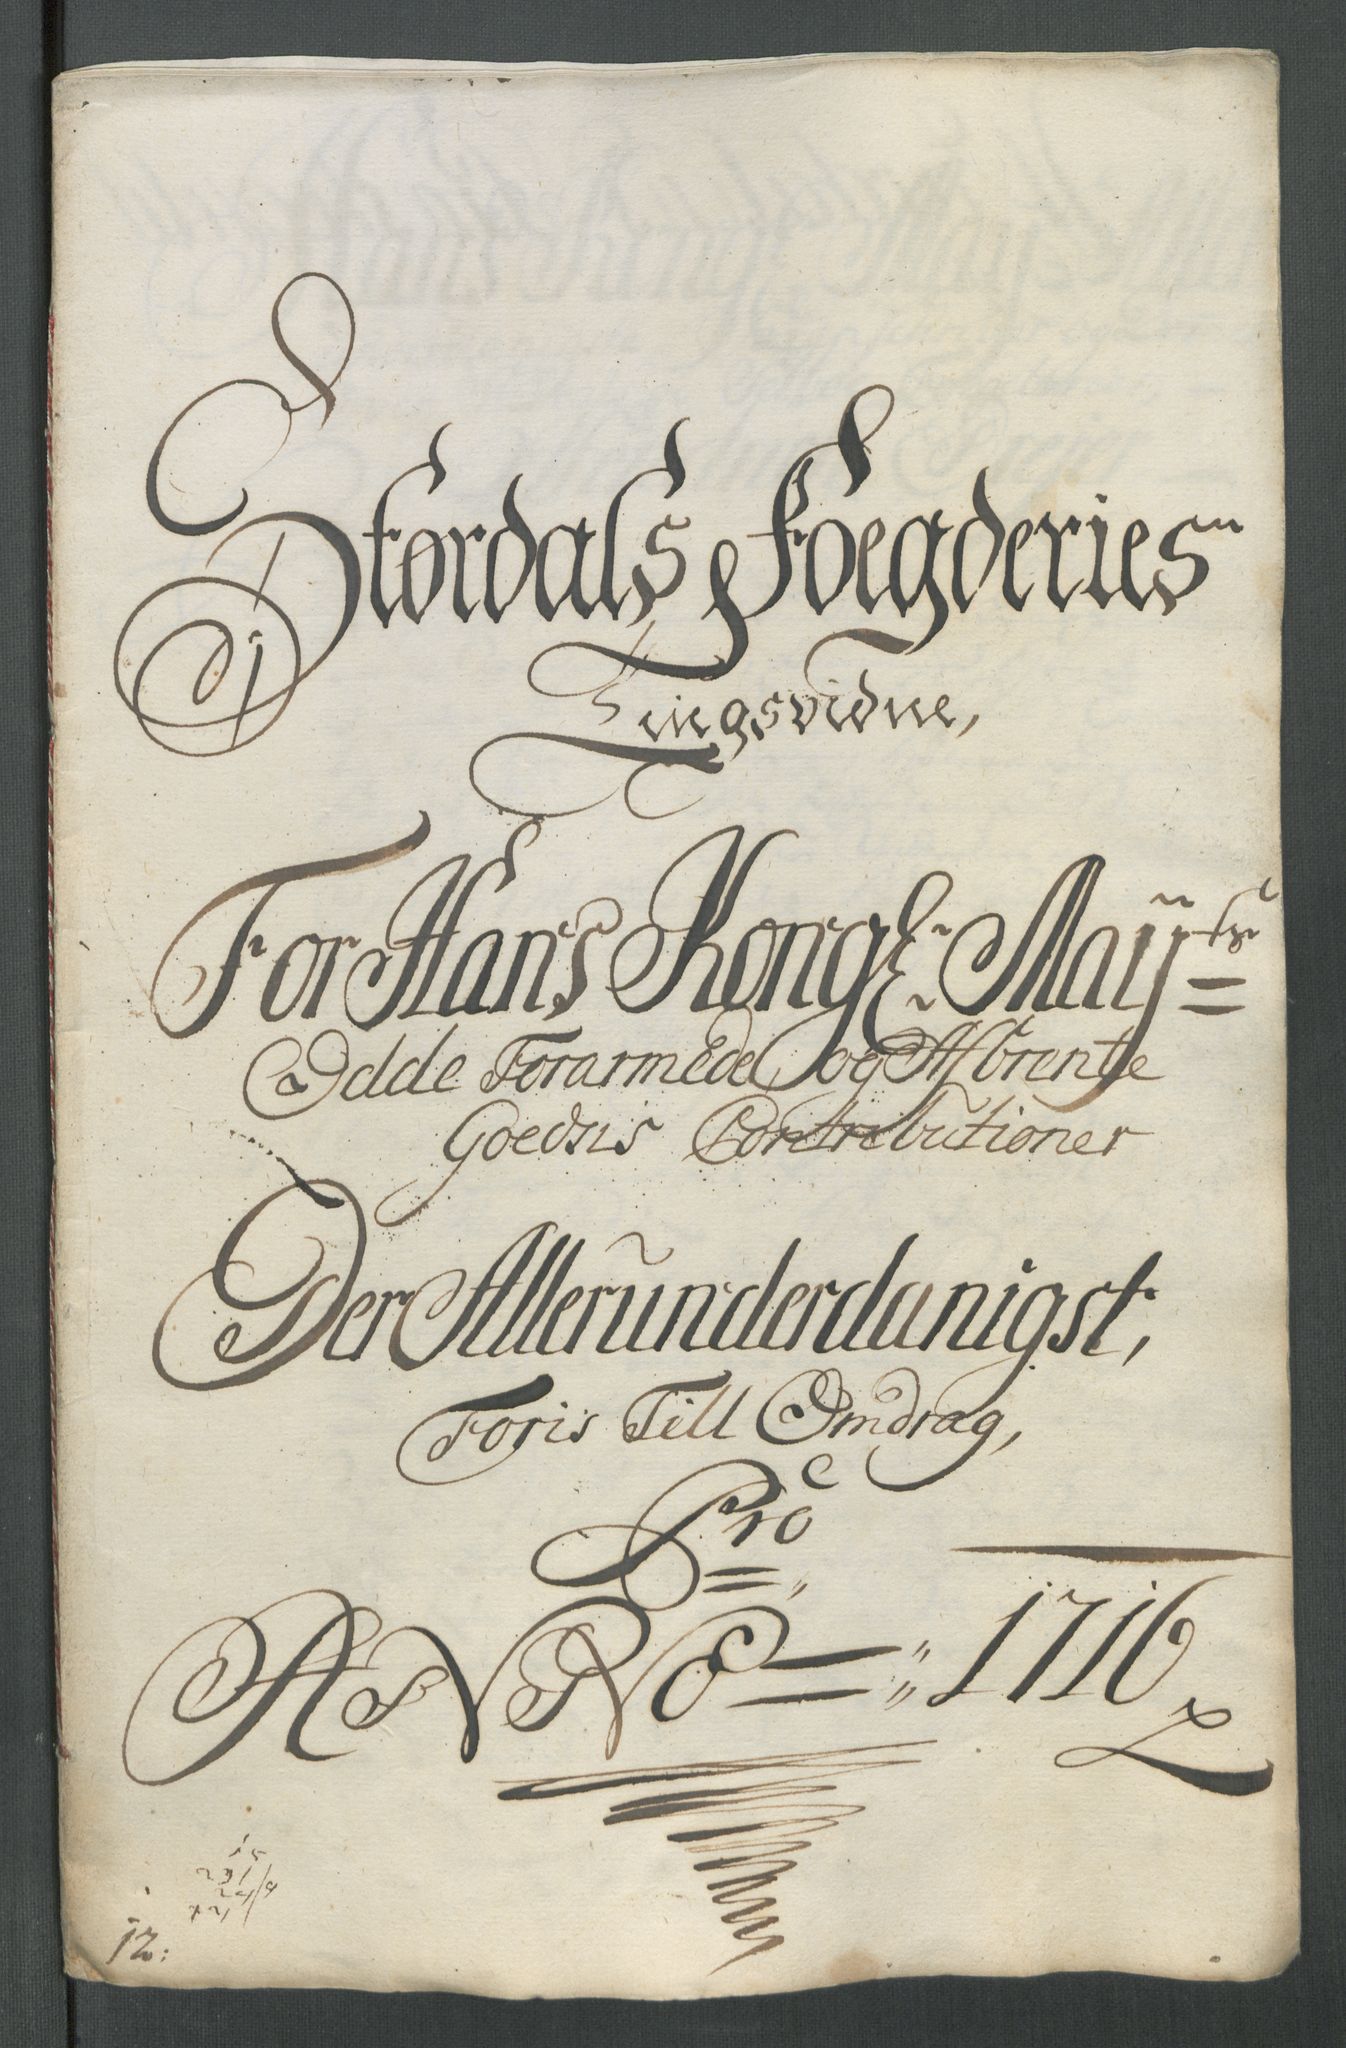 Størdals Foegderies
Tingsvidne,
For Hans Kongl: Mayts
Ødde Forarmede og Afbrente
Goedsis Contributioner
Der Allerunderdanigst,
Foris Till Omdrag,
Pro
ANNO 1716
12: